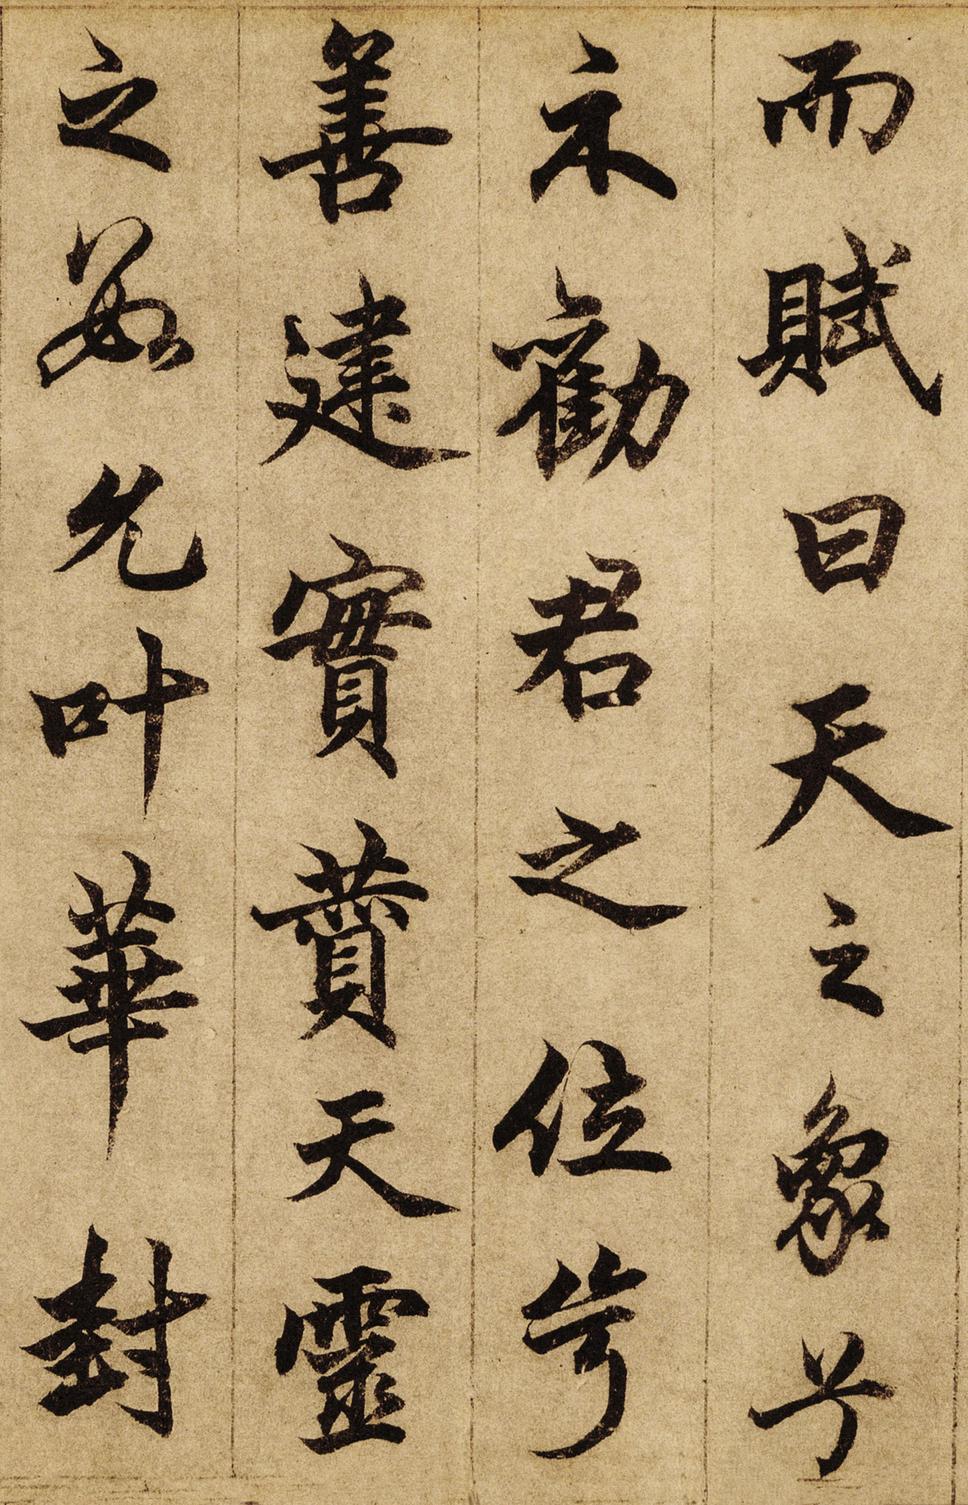 而賦曰天之象兮
示勸君之位兮
善建實贊天靈
之數允叶華封